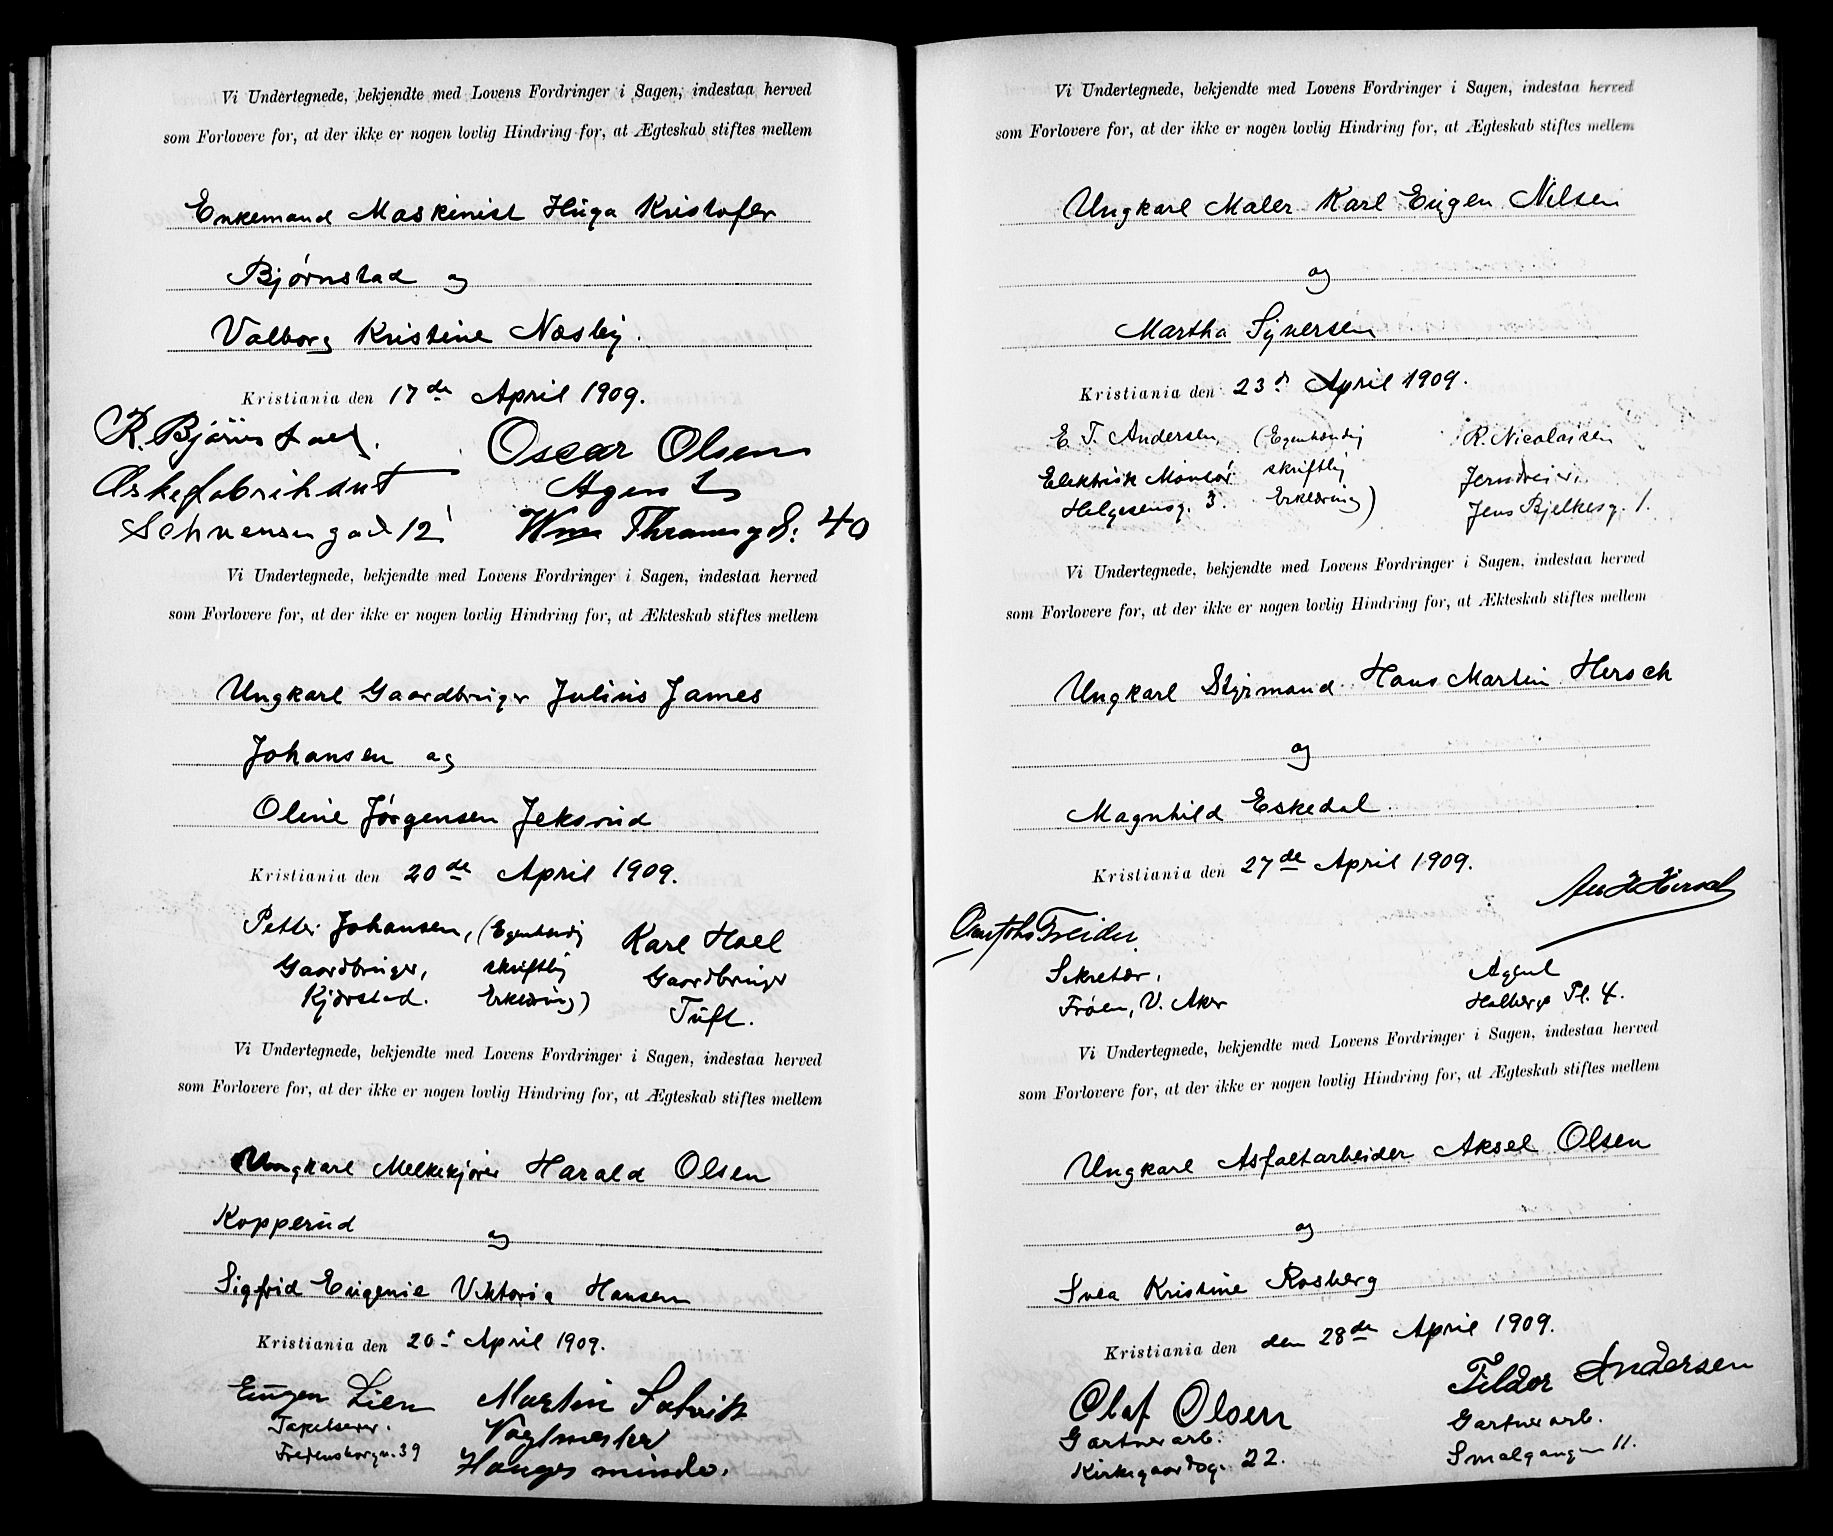 Vi Undertegnede, bekjendte med Lovens Fordringer i Sagen, indestaa herved
som Forlovere for, at der ikke er nogen lovlig Hindring for, at Ægteskab stiftes mellem
Enkemand Maskinist Hugo Kristofer
Bjørnstad og
Valborg Kristine Næsby.
Kristiania den 17de April 1909.
R. Bjørnstad. Oscar Olsen
Æskefabrikant Agent
12 Thranesgd: 40
Vi Undertegnede, bekjendte med Lovens Fordringer i Sagen, indestaa herved
som Forlovere for, at der ikke er nogen lovlig Hindring for, at Ækteskab stiftes mellem
Ungkarl Gaardbruger Julius James
Johansen og
Oline Jørgensen Jeksrud
Kristiania den 20de April 1909.
Petter Johansen, (Egenhændig Karl Hoel
Gaardbruger, skriftlig Gaardbruger
Kjørstad. Erklæring) Tuft.
Vi Undertegnede, bekjendte med Lovens Fordringer i Sagen, indestaa herved
som Forlovere for, at der ikke er nogen lovlig Hindring for, at Ægteskab stiftes mellem
Ungkarl Melkekjører Harald Olsen
Kopperud og
Sigfrid Eugenie Viktoria Hansen
Kristiania den 20de April 1909.
Eugen Lien Martin
Tapetserer. Vogtmester
Fredensborgvn. 39 Haugesminde.
Vi Undertegnede, bekjendte med Lovens Fordringer i Sagen, indestaa herved
som Forlovere for, at der ikke er nogen lovlig Hindring for, at Ægteskab stiftes mellem
Ungkarl Maler Karl Eugen Nilsen
og
Martha Syversen
Kristiania den 23d April 1909.
E. T. Andersen, (Egenhændig R. Nicolaisen
Elektrisk Montør skriftlig Jerndreier,
Helgesensg. 3. Erklæring) Jens Bjelkesg. 1.
Vi Undertegnede, bekjendte med Lovens Fordringer i Sagen, indestaa herved
som Forlovere for, at der ikke er nogen lovlig Hindring for, at Ækteskab stiftes mellem
Ungkarl Styrmand Hans Martin Hersch
og
Magnhild Eskedal.
Kristiania den 27de April 1909.
Hersch
Sekretær, Agent
Frøen, V. Aker Holbergs Pl. 4.
Vi Undertegnede, bekjendte med Lovens Fordringer i Sagen, indestaa herved
som Forlovere for, at der ikke er nogen lovlig Hindring for, at Ægteskab stiftes mellem
Ungkarl Asfaltarbeider Aksel Olsen
og
Svea Kristine Rosberg
Kristiania den den 28de April 1909.
Olaf Olsen Tildor Andersen
Gartnerarb. Gartnerarb.
Kirkegaardsg. 22. Smalgangen 11.